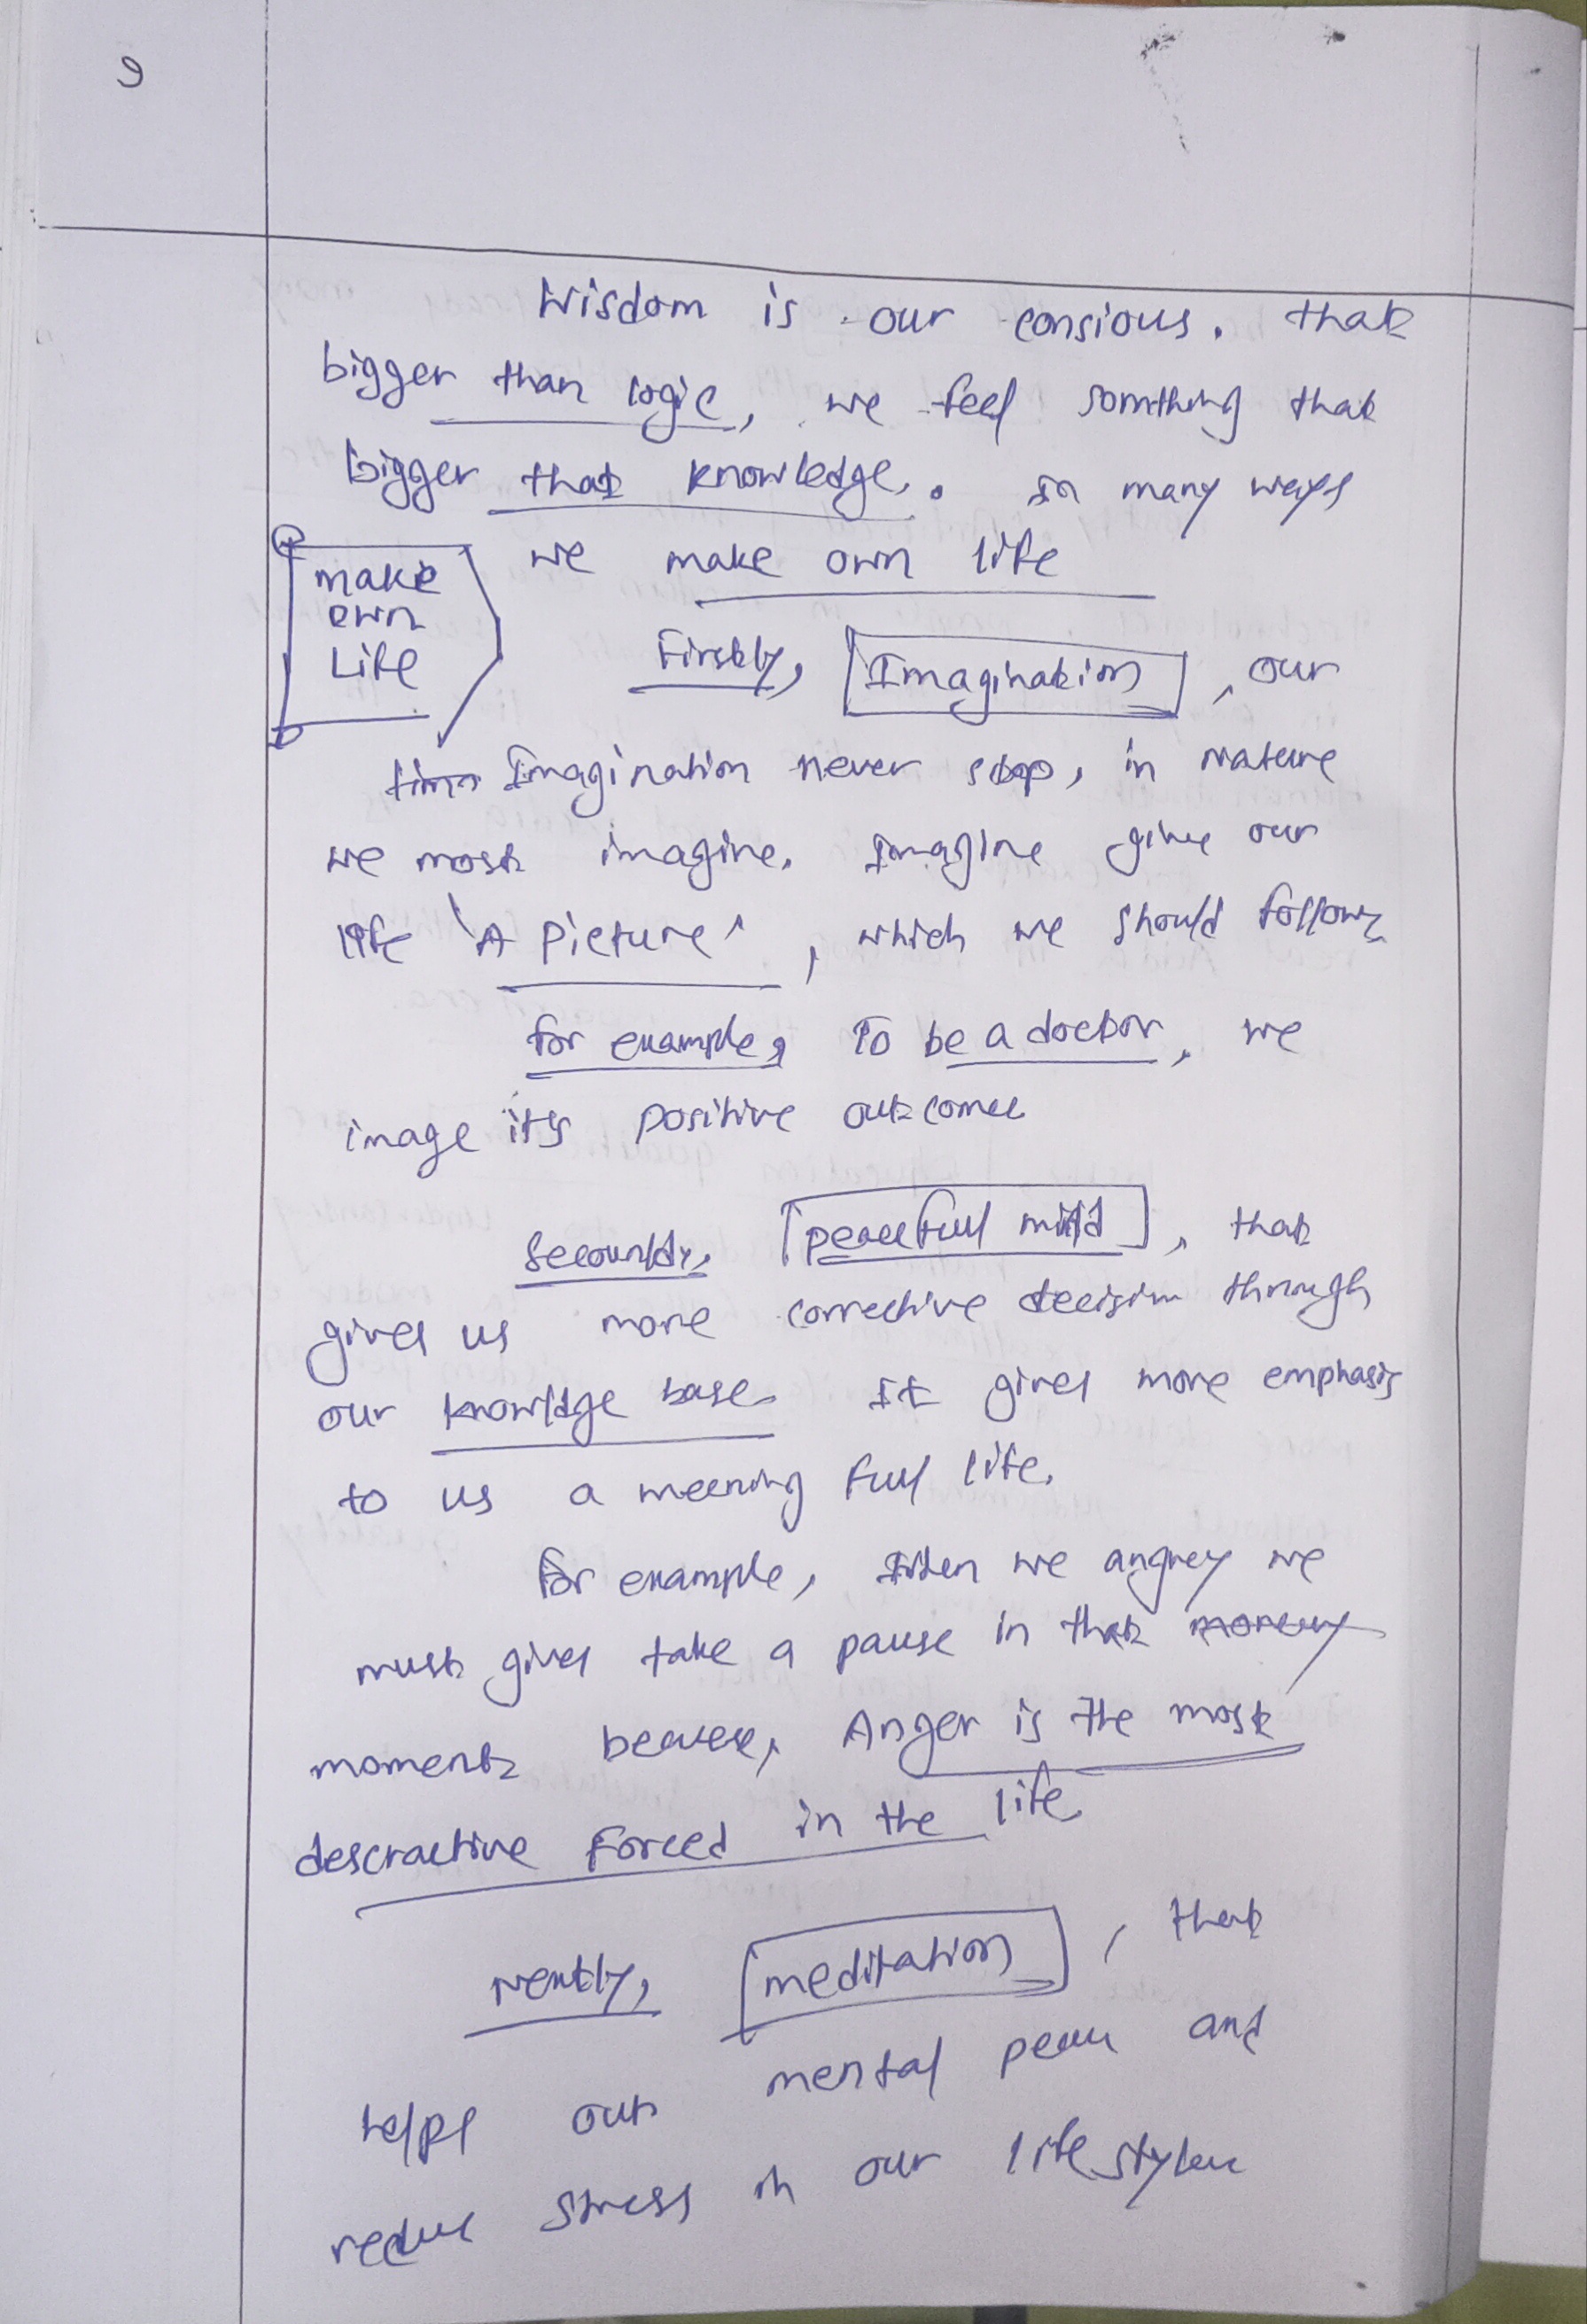 9
Wisdom is our consious. that
bigger than logic, we feel somthing that
bigger that knowledge. In many ways
we make own life
make
own
Life
Firstly, Imagination, our
Imagination never stop, in nature
we most imagine. Imagine give our
life 'A picture', which we should follow
for example, To be a doctor, we
image it's positive outcomes
Secoundly, peaceful mind, that
gives us more corrective decision through
our knowldge base It gives more emphasis
to us a meening full life.
for example, When we angrey we
must gives take a pause in that
moment because, Anger is the most
descractive Forced in the life
Nextly, meditation, that
helps our mental peace and
reduce stress in our life style